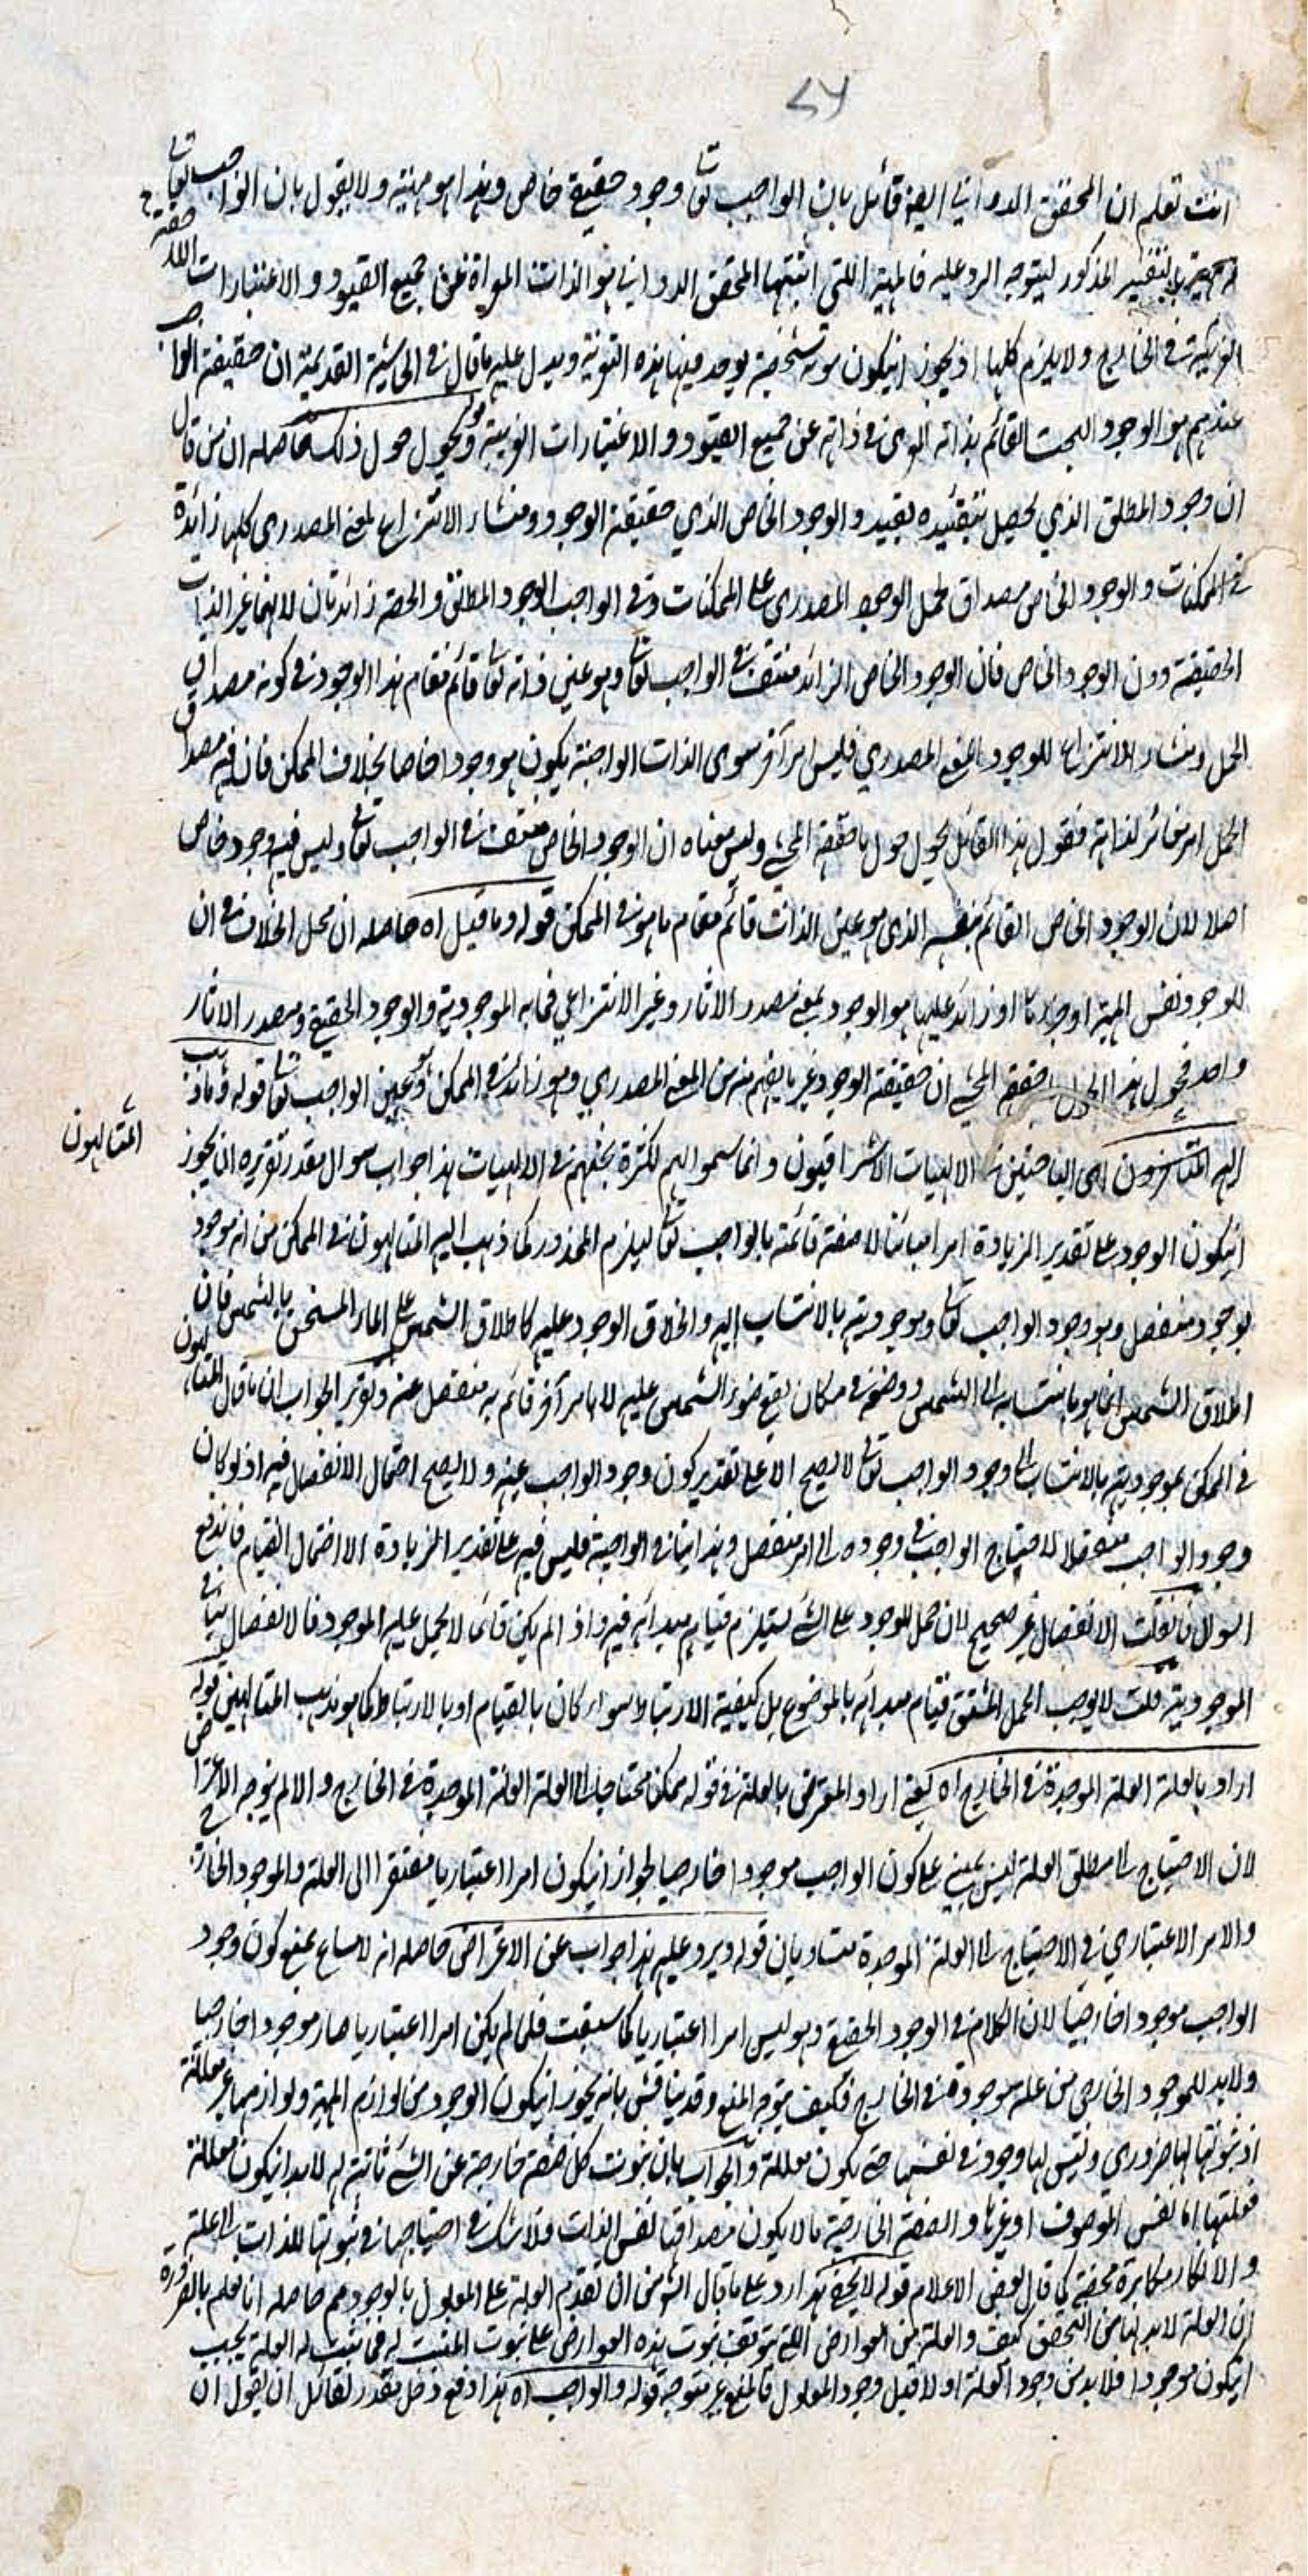 ٢٧
انت تعلم ان المحقق الدواني ايضا قائل بان الواجب تعا وجود حقيقي خاص وهذا هو مهيته ولا يقول بان الواجب تعا
بالتفسير المذكور ليتوجه الرد عليه فالمهية اللتي اثبتها المحقق الدواني هو الذات المعراة عن جميع القيود والاعتبارات
في الخارج ولا يلزم كليها اذ يجوز انيكون هوية شخصية يوجد فيها هذه التعرية ويدل عليه ما قال في الحاشية القديمة ان حقيقة الواجب
عندهم هو الوجود البحت القائم بذاته المعرى في ذاته عن جميع القيود والاعتبارات الغريبة وقوله يحول حول ذلك حاصله ان من قال
ان وجود المطلق الذي يحصل بتقييده بقييد والوجود الخاص الذي حقيقة الوجود ومنشاء الانتزاع للمعنى المصدري كلها زائدة
في الممكنات والوجود الخاص مصداق لحمل الوجود المصدري على الممكنات وفي الواجب الوجود المطلق والحصة زائدتان لانهما غير الذات
الحقيقة دون الوجود الخاص فان الوجود الخاص الزائد منتف في الواجب تعا وهو عين ذاته تعا قائم مقام هذا الوجود في كونه مصداق
الحمل ومنشاء الانتزاع للوجود بالمعنى المصدري فليس امر آخر سوى الذات الواجبة يكون هو وجودا خاصا بخلاف الممكن فان فيه مصداق
الحمل امر مغائر لذاته فقول هذا القائل يحول حول ما حققه المحشي وليس معناه ان الوجود الخاص منتف في الواجب تعا وليس فيه وجود خاص
اصلا لان الوجود الخاص القائم بنفسه الذي هو عين الذات قائم مقام ما هو في الممكن قوله وما قيل اه حاصله ان محل الخلاف في ان
الوجود نفس المهية او جزءها او زائد عليها هو الوجود بمعنى مصدر الآثار وغير الانتزاعي فما به الموجودية والوجود الحقيقي ومصدر الاثار
واحد فحول هذا الحول حقق المحشي ان حقيقة الوجود غير ما يفهم منه من المعنى المصدري وهو زائد في الممكن وعين الواجب تعا قوله وما ذهب
اليه المتألهون اى الباحثين في الالهيات الاشراقيون وانما سموا بهم لكثرة بحثهم في الالهيات هذا جواب سوال مقدر تقريره ان يجوز
المتالهون
انيكون الوجود على تقدير الزيادة امرا مباينا لا صفة قائمة بالواجب تعا ليلزم المحذور كما ذهب اليه المتالهون في الممكن من انه موجود
بوجود منفصل وهو وجود الواجب تعا وموجوديته بالانتساب اليه واطلاق الوجود عليه كاطلاق الشمس على الماء المسخن بالشمس فان
اطلاق الشمس انما هو بانتسابه الى الشمس ووضعه في مكان يقع ضوء الشمس عليه لا بامر آخر قائم به منفصل عنه وتقرير الجواب ان ما قال المتالهون
في الممكن بموجوديته بالانتساب الى وجود الواجب تعا لا يصح الا على تقدير كون وجود الواجب عينه ولا يصح احتمال الانفصال فيه اذ لو كان
وجود الواجب منفصلا لاحتياج الواجب في وجوده الى امر منفصل وهذا ينافي الواجبية فليس فيه على تقدير الزيادة الا احتمال القيام فاندفع
السوال فانقلت الانفصال غير صحيح لان حمل الموجود على الشئ يستلزم قيام مبدائه فيه واذ لم يكن قائما لا يحمل عليه الموجود فالانفصال ينافي
الموجودية قلت لا يوجب الحمل المشتق قيام مبدائه بالموضوع بل كيفية الارتباط سواء كان بالقيام او بالارتباط كما هو مذهب المتالهين قوله
اراد بالعلة العلة الموجدة في الخارج اه يعني اراد المعترض بالعلة في قوله ممكن محتاج الى العلة العلة الموجدة في الخارج والا لم يتوجه الاعتراض
لان الاحتياج الى مطلق العلة ليس يبنى على كون الواجب موجودا خارجيا لجواز انيكون امرا اعتباريا مفتقرا الى العلة والموجود الخارجي
والامر الاعتباري في الاحتياج الى العلة الموجدة متساويان قوله ويرد عليه هذا جواب عن الاعتراض حاصله انه لا مساغ لمنع كون وجود
الواجب موجودا خارجيا لان الكلام في الوجود الحقيقي وهو ليس امرا اعتباريا كما سبقت فلما لم يكن امرا اعتباريا صار موجودا خارجيا
ولابد للموجود الخارجي من علة موجودة في الخارج فكيف يتوجه المنع وقد يناقش بانه يجوز انيكون الوجود من لوازم المهية ولوازمها غير معللة
اذ ثبوتها لها ضروري وليس لها وجود في نفسها حتى يكون معللة والجواب بان ثبوت كل صفة خارجة عن الشئ ثابتة له لابد انيكون معللة
فعلتها اما نفس الموصوف او غيرها والصفة الخارجية ما لا يكون مصداقها نفس الذات فلا شك في احتياجها في ثبوتها للذات الى علة
والانكار مكابرة محضة كما قال بعض الاعلام قوله لا يخفى هذا رد على ما قال الشو من ان تقدم العلة على المعلول بالوجود مم حاصله انا نعلم بالضرورة
ان العلة لابد لها من التحقق كيف والعلة من العوارض اللتي يتوقف ثبوت هذه العوارض على ثبوت المثبت له فمن ثبت له العلة يجب
انيكون موجودا فلابد من وجود العلة اولا قبل وجود المعلول فالمنع غير متوجه قوله والواجب اه هذا دفع دخل مقدر لقائل ان يقول ان